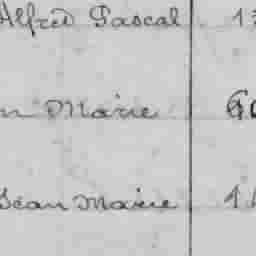 Alfred Pascal 13
n Marie 60
Jean Marie 14